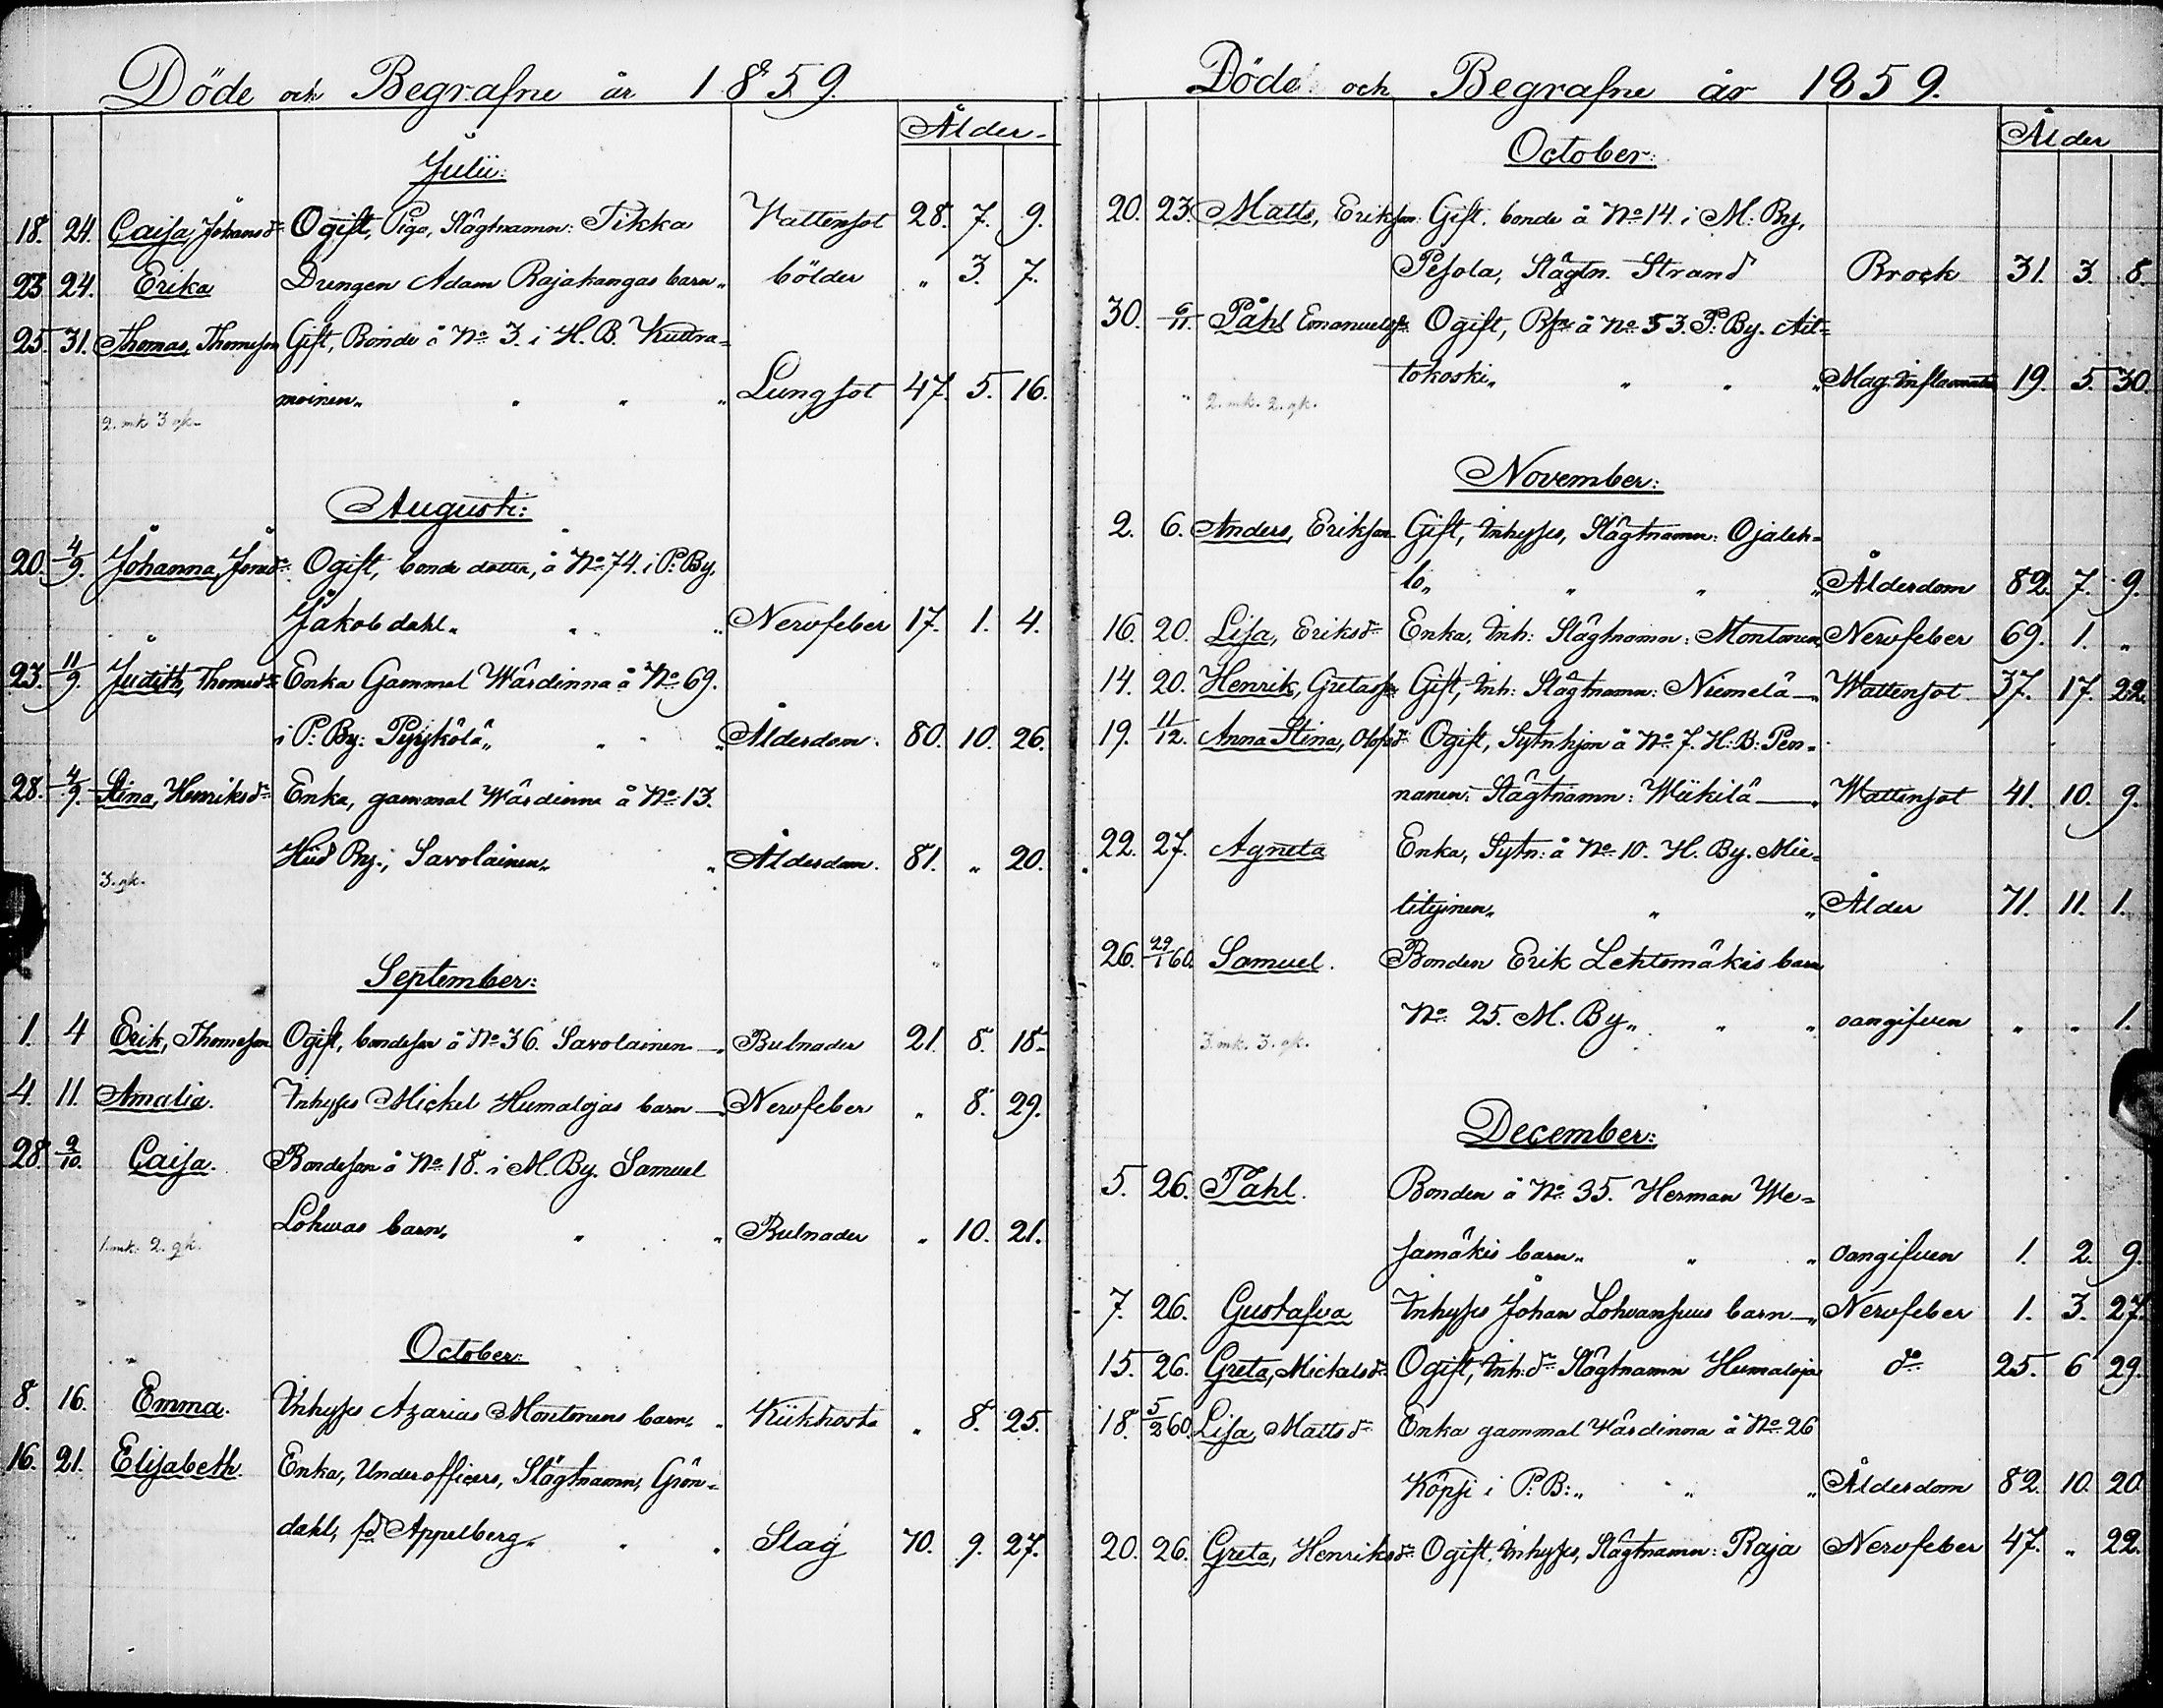 Döde och Begrafne år 1859.
Ålder
Julii:
18. 24. Caisa, Johansdr Ogift, Piga, Slägtnamn: Tikka Wattensot 28. 7. 9.
23 24. Erika Drengen Adam Rajakangas barn „ bölder „ 3. 7.
25. 31. Thomas, Thomeson Gift, Bonde å No 3. i H. B. Kuttra=
moinen „ „ „ „ Lungsot 47. 5. 16.
2. mk 3 qk.
Augusti:
20. 4/9. Johanna, Jonsdr Ogift, bonde dotter, å No 74. i P. By.
Jakob dahl „ „ „ Nervfeber 17. 1. 4.
23. 11/9. Judith, Thomsdr Enka Gammal Wärdinna å No 69.
i P. By: Pyykölä „ „ „ Ålderdom. 80. 10. 26.
28. 4/9. Stina, Henriksdr Enka, gammal Wärdinna å No 13.
Hud By., Savolainen „ „ Ålderdom. 81. „ 20.
3. qk.
September:
1. 4 Erik, Thomeson Ogift, bondeson å No 36. Savolainen — Bulnader 21. 8. 18.
4. 11. Amalia. Inhyses Mickel Humalojas barn — Nervfeber „ 8. 29.
28. 9/10. Caisa. Bondeson å No 18. i M. By. Samuel
Lohwas barn „ „ „ Bulnader „ 10. 21.
1. mk. 2. qk.
October:
8. 16. Emma. Inhyses Azarias Montonens barn „ „ Kikhosta „ 8. 25.
16. 21. Elisabeth. Enka, Underofficers, Slägtnamn, Grön=
dahl, fd Appelberg „ „ „ Slag 70. 9. 27.
Döde och Begrafne år 1859.
Ålder
October:
20. 23. Matts, Erikson Gift. bonde å No 14. i M. By,
Pesola, Slägtn. Strand Brock 31. 3. 8.
30. 6/11. Påhl Emanuelss. Ogift, Bs. å No 53. P. By. Ait=
tokoski „ „ „ „ Mag. Inflammation 19. 5. 30.
2. mk. 2. qk.
November:
2. 6. Anders, Erikson Gift, Inhyses, Slägtnamn: Ojaleh=
to „ „ „ „ Ålderdom 82. 7. 9.
16. 20. Lisa, Eriksdr Enka, Inh: Slägtnamn: Montonen Nervfeber 69. 1. „
14. 20. Henrik, Gretasson Gift, Inh: Slägtnamn: Niemelä — Wattensot 37. 17. 22.
19. 11/12. Anna Stina, Olofsdr Ogift, Sytnhjon å No 7. H: B: Pen=
nanen: Slägtnamn: Wiikilä — Wattensot 41. 10. 9.
22. 27. Agneta Enka, Sytn: å No 10. H. By. Mie=
titijinen „ „ „ Ålder 71. 11. 1.
26. 29/1 60. Samuel. Bonden Erik Lehtomäkis barn
No 25. M. By „ „ „ oangifven „ „ 1.
3. mk. 3. qk.
December:
5. 26. Påhl. Bonden å No 35. Herman We=
samäkis barn „ „ „ oangifven 1. 2. 9.
7. 26. Gustafva Inhyses Johan Lohvansuus barn — Nervfeber 1. 3. 27.
15. 26. Greta, Mickelsdr Ogift, Inh: dr Slägtnamn Humaloja do 25. 6 29.
18. 5/2 60. Lisa Mattsdr Enka gammal Wärdinna å No 26
Köpsi i P. B: „ „ „ Ålderdom 82. 10. 20
20. 26. Greta, Henriksdr Ogift. Inhyses, Slägtnamn: Raja Nervfeber 47. „ 22.